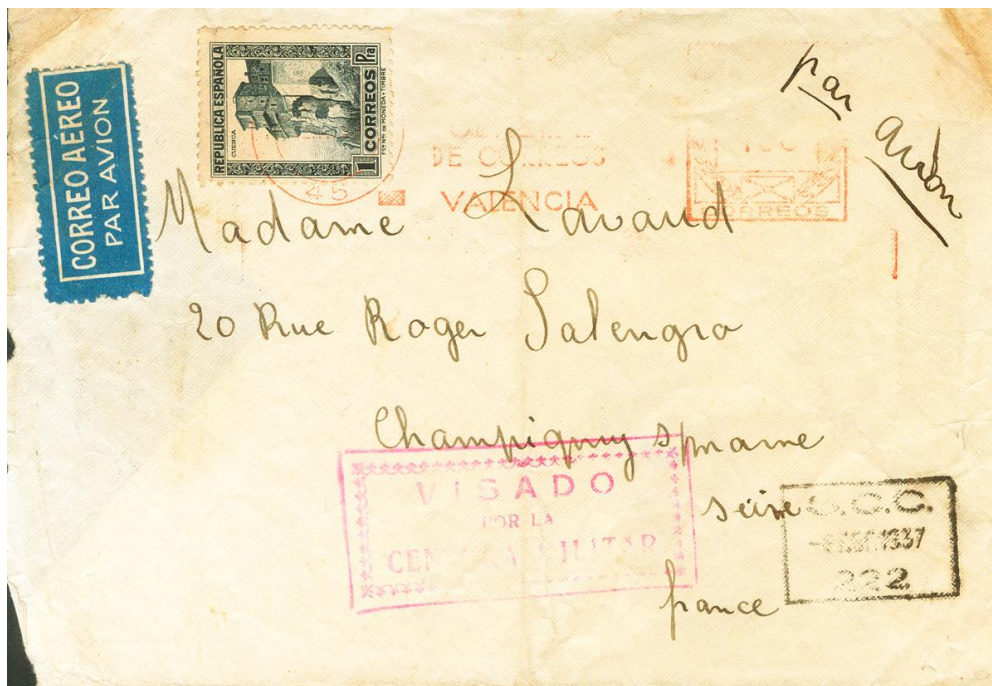 CORREO AÉREO
PAR AVION
REPUBLICA ESPAÑOLA
CUENCA
1 CORREOS Pta
par avion
DE CORREOS
VALENCIA
CORREOS
45
Madame Lavaud
20 Rue Roger Salengro
Champigny s/marne
seine
france
VISADO
POR LA
CENSURA MILITAR
1937
222.